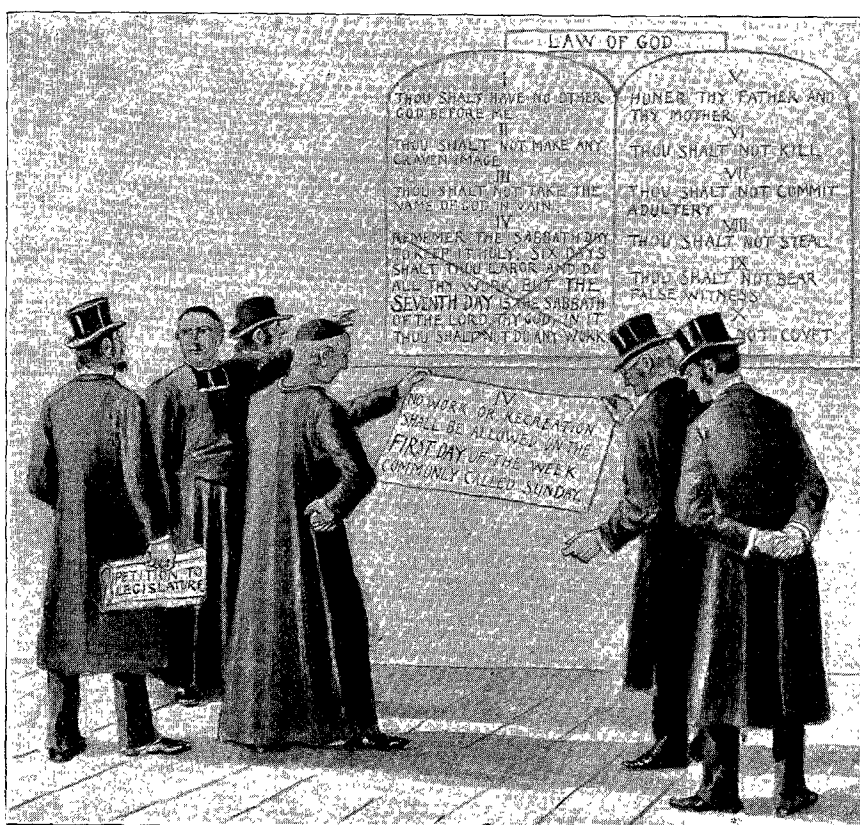 LAW OF GOD
I
THOU SHALT HAVE NO OTHER
GOD BEFORE ME
II
THOU SHALT NOT MAKE ANY
GRAVEN IMAGE
III
THOU SHALT NOT TAKE THE
NAME OF GOD IN VAIN
IV
REMEMER THE SABBATH DAY
TO KEEP IT HOLY. SIX DAYS
SHALT THOU LABOR AND DO
ALL THY WORK BUT THE
SEVENTH DAY IS THE SABBATH
OF THE LORD THY GOD, IN IT
THOU SHALT N'T DO ANY WORK
V
HONER THY FATHER AND
THY MOTHER
VI
THOU SHALT NOT KILL
VII
THOU SHALT NOT COMMIT
ADULTERY
VIII
THOU SHALT NOT STEAL
IX
THOU SHALT NOT BEAR
FALSE WITNESS
X
NOT COVET
IV
NO WORK OR RECREATION
SHALL BE ALLOWED ON THE
FIRST DAY OF THE WEEK
COMMONLY CALLED SUNDAY.
PETITION TO
LEGISLATURE